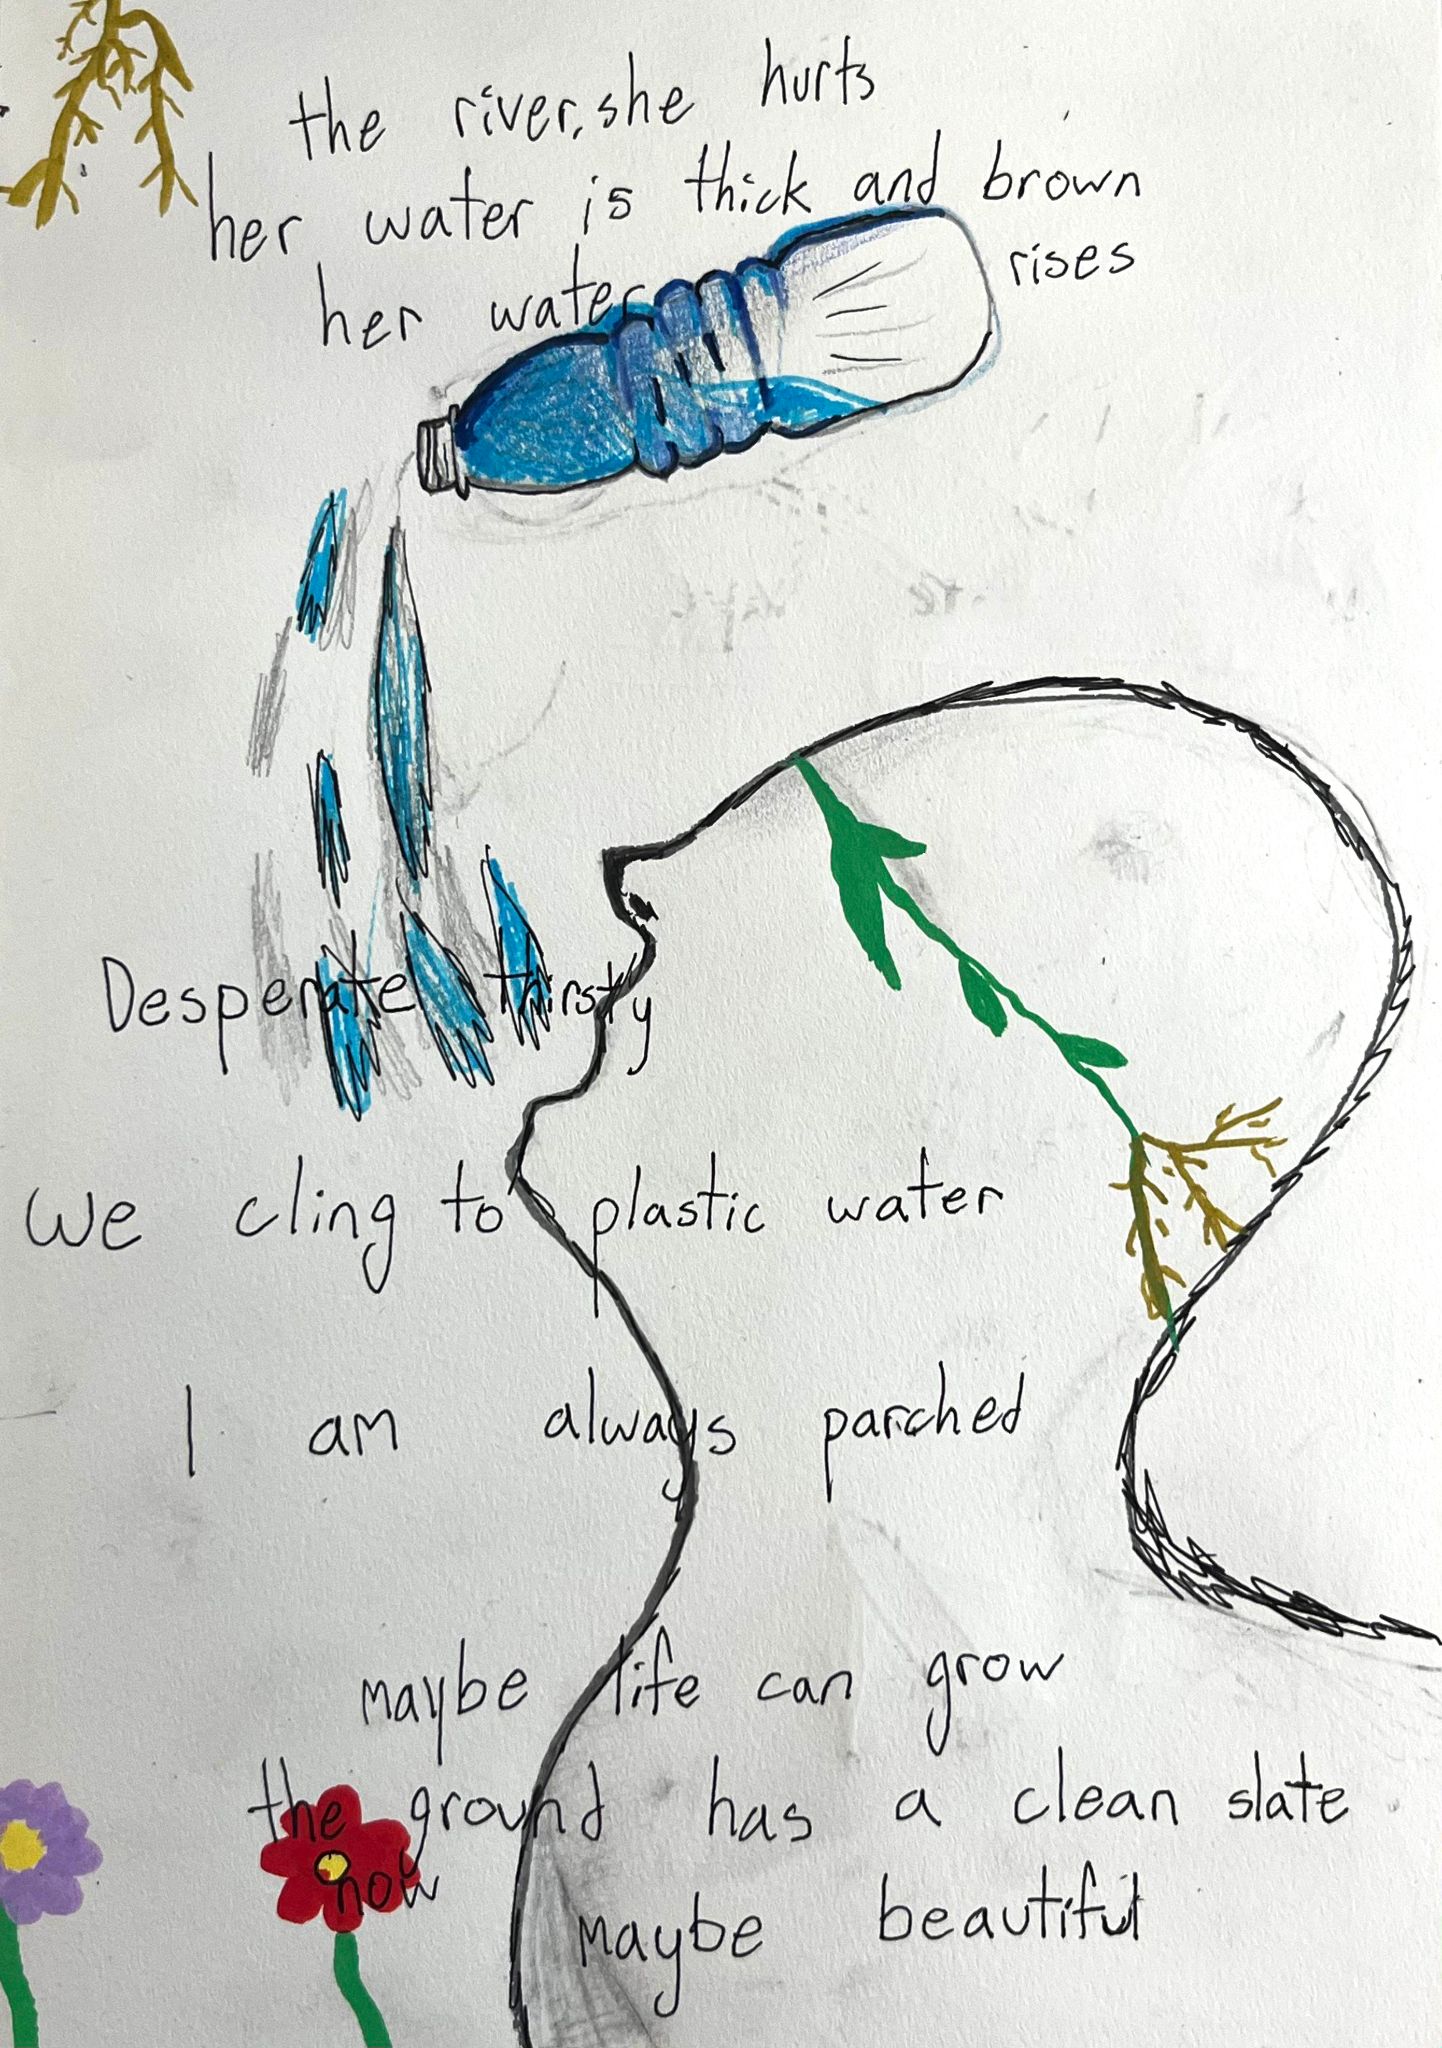 the river, she hurts
her water is thick and brown
her water rises
Desperate thirsty
We cling to plastic water
I am always parched
maybe life can grow
the ground has a clean slate
now
maybe beautiful